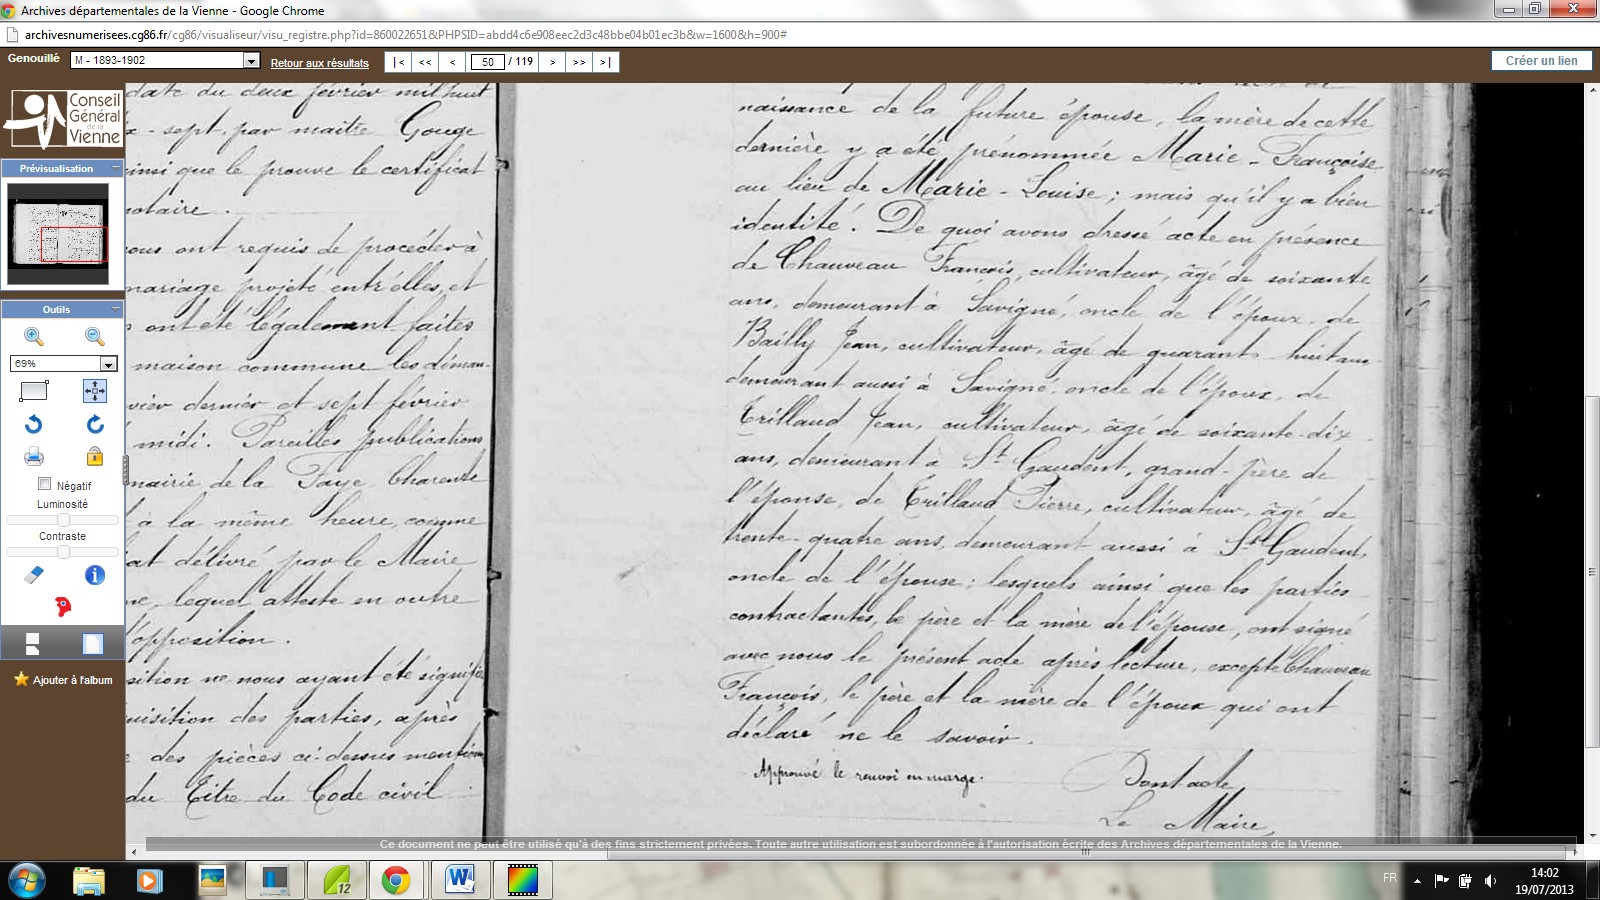 Archives départementales de la Vienne - Google Chrome
archivesnumerisees.cg86.fr/cg86/visualiseur/visu_registre.php?id=860022651&PHPSID=abdd4c6e908eec2d3c48bbe04b01ec3b&w=1600&h=900#
Genouillé
M - 1893-1902
Retour aux résultats
|< << < 50 / 119 > >> >|
Créer un lien
Conseil
Général
de la
Vienne
Prévisualisation
Outils
69%
Négatif
Luminosité
Contraste
Ajouter à l'album
date du deux février mil huit
-sept, par maître Gouge
ainsi que le prouve le certificat
notaire.
nous ont requis de procéder à
mariage projeté entr'elles, et
ont été légalement faites
maison commune les diman
vier dernier et sept février
midi. Pareilles publications
mairie de la Faye, Charente
à la même heure, comme
cat délivré par le Maire
ne, lequel atteste en outre
d'opposition.
sition ne nous ayant été signifiée
uisition des parties, après
des pièces ci-dessus mention
du Titre du Code civil
naissance de la future épouse, la mère de cette
dernière y a été prénommée Marie-Françoise
au lieu de Marie-Louise; mais qu'il y a bien
identité. De quoi avons dressé acte en présence
de Chauveau François, cultivateur, âgé de soixante
ans, demeurant à Savigné, oncle de l'époux, de
Bailly Jean, cultivateur, âgé de quarante-huit ans
demeurant aussi à Savigné, oncle de l'époux, de
Trillaud Jean, cultivateur, âgé de soixante-dix
ans, demeurant à St Gaudent, grand-père de
l'épouse, de Trillaud Pierre, cultivateur, âgé de
trente-quatre ans, demeurant aussi à St Gaudent,
oncle de l'épouse; lesquels ainsi que les parties
contractantes, le père et la mère de l'épouse, ont signé
avec nous le présent acte après lecture, excepté Chauveau
François, le père et la mère de l'époux qui ont
déclaré ne le savoir.
Approuvé le renvoi en marge.
Dont acte
Le Maire,
Ce document ne peut être utilisé qu'à des fins strictement privées. Toute autre utilisation est subordonnée à l'autorisation écrite des Archives départementales de la Vienne.
12
FR
14:02
19/07/2013